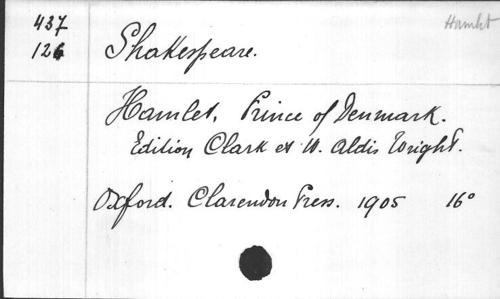 437
126
Hamlet
Shakespeare.
Hamlet, Prince of Denmark.
Edition Clark et W. Aldis Wright.
Oxford. Clarendon Press. 1905 16°